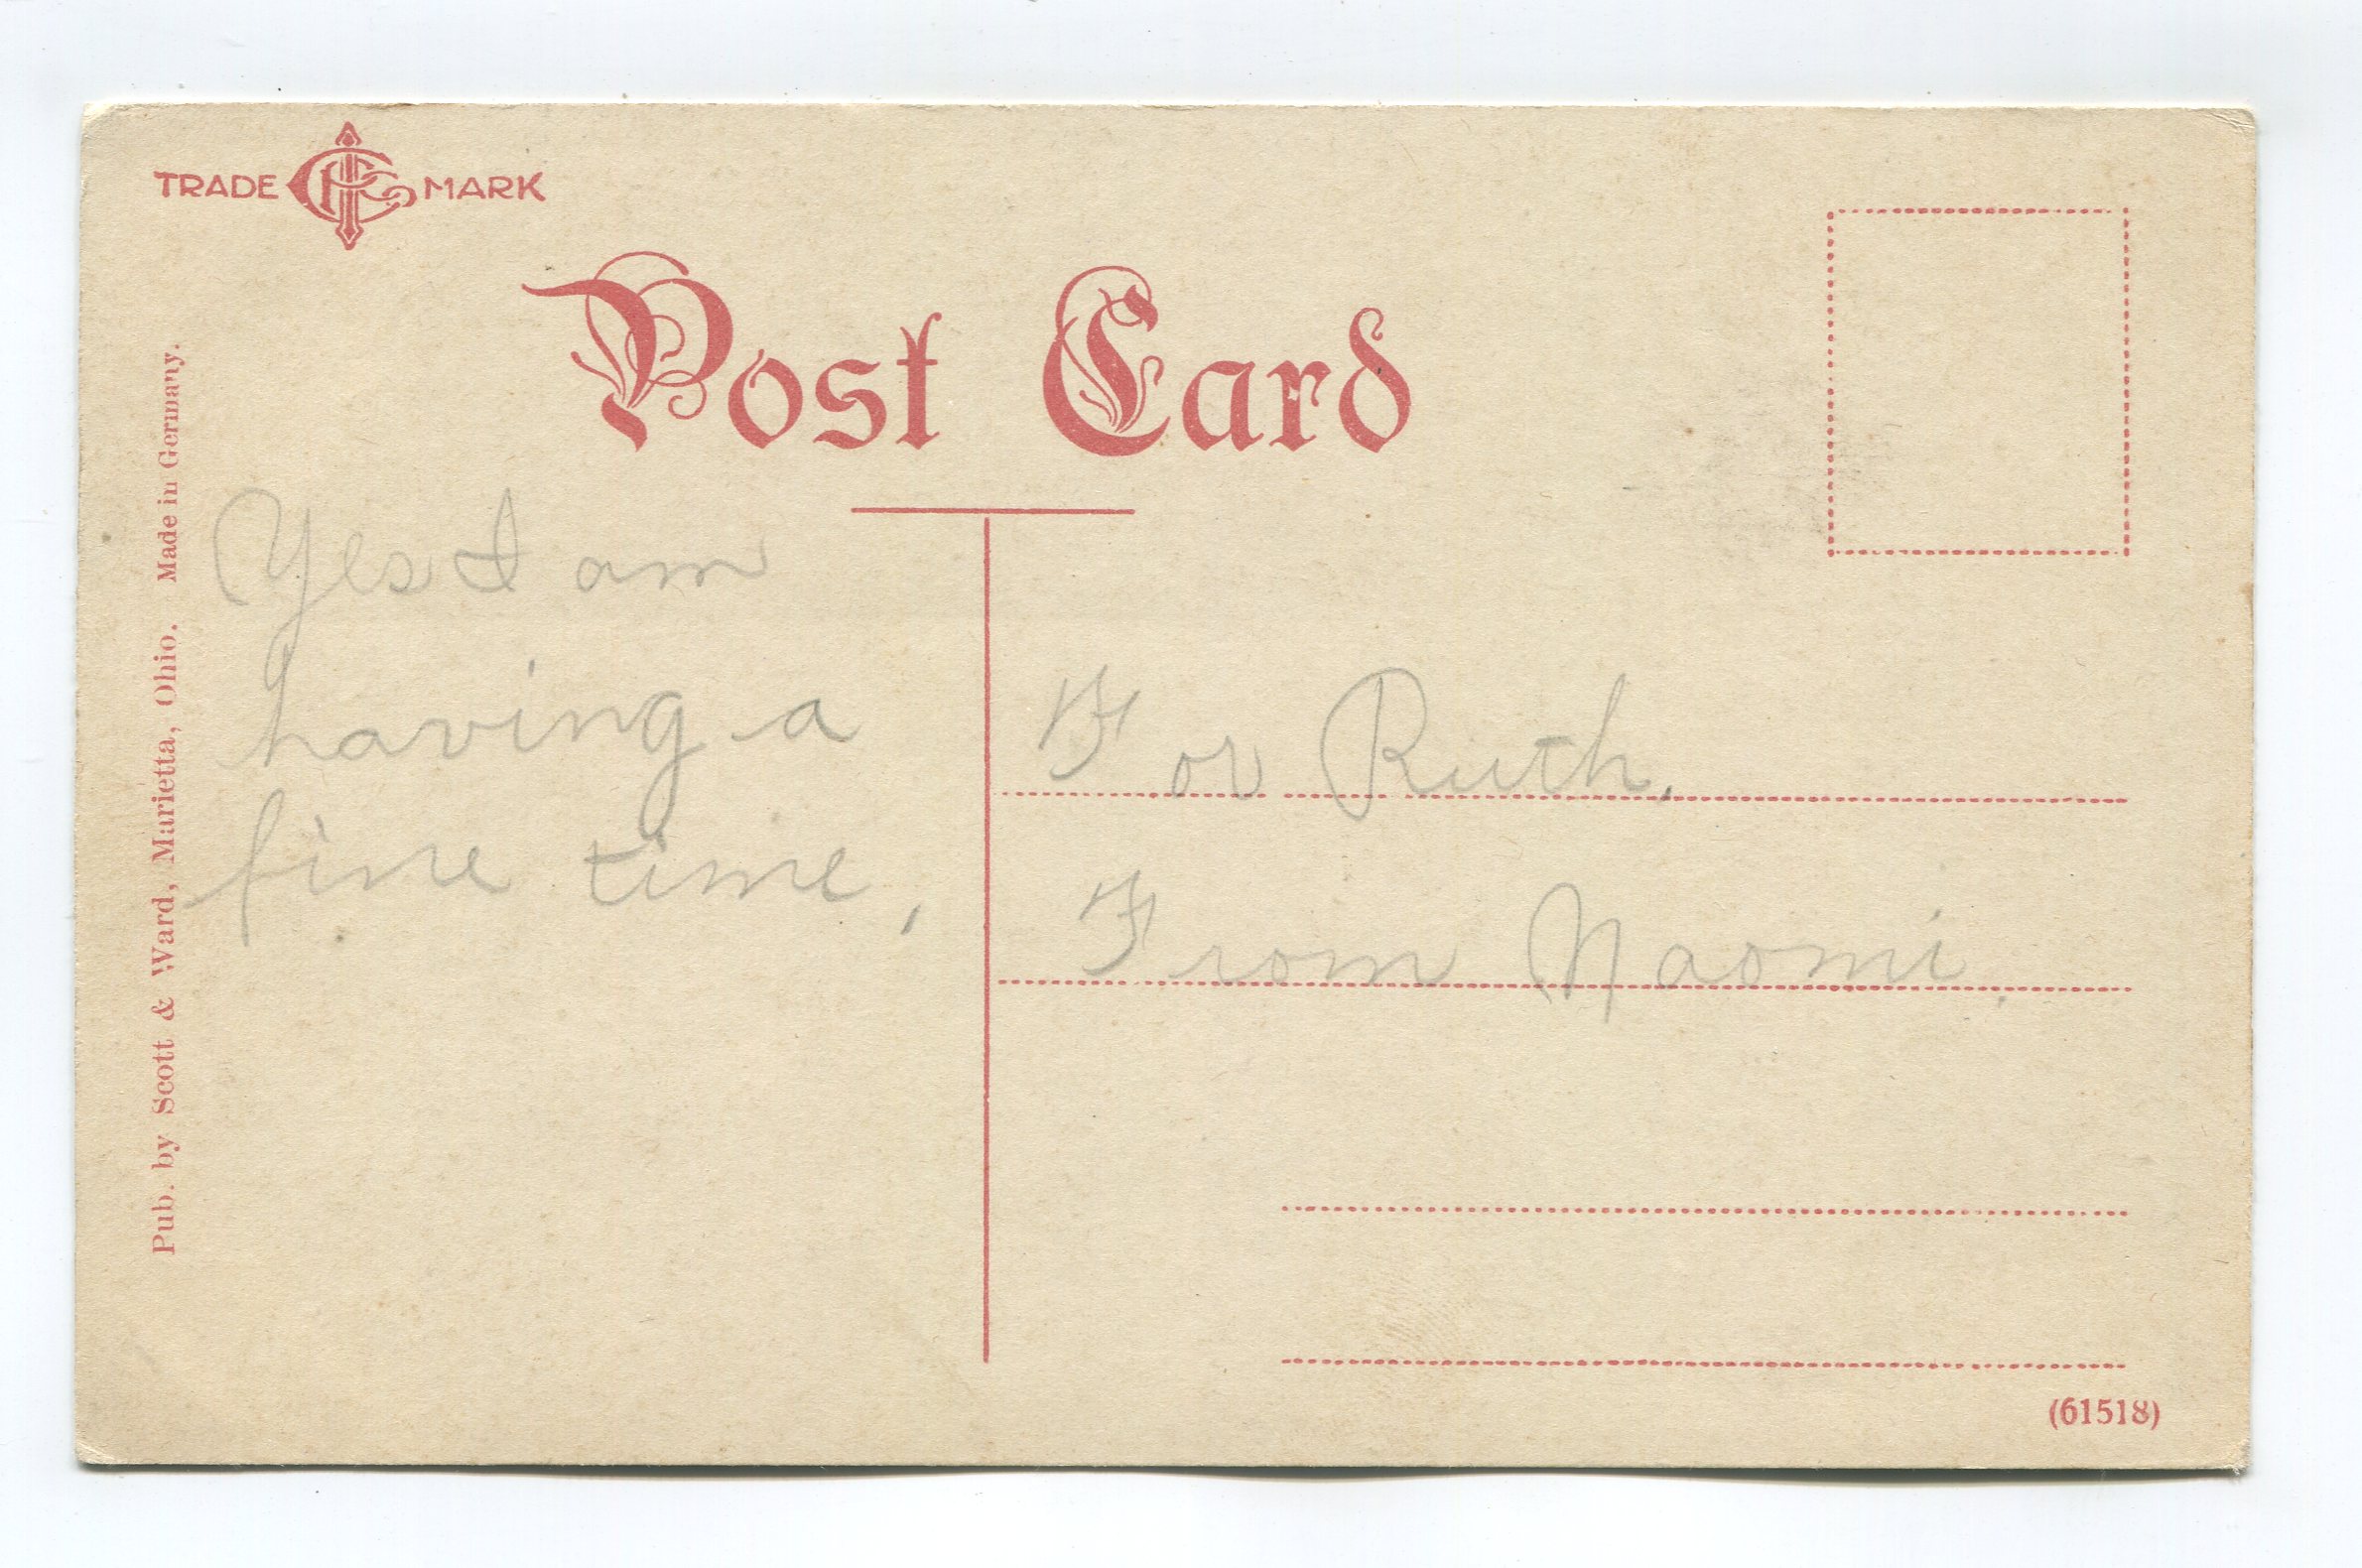 TRADE MARK
Post Card
Pub. by Scott & Ward, Marietta, Ohio. Made in Germany.
Yes I am
having a
fine time,
For Ruth.
From Naomi.
(61518)